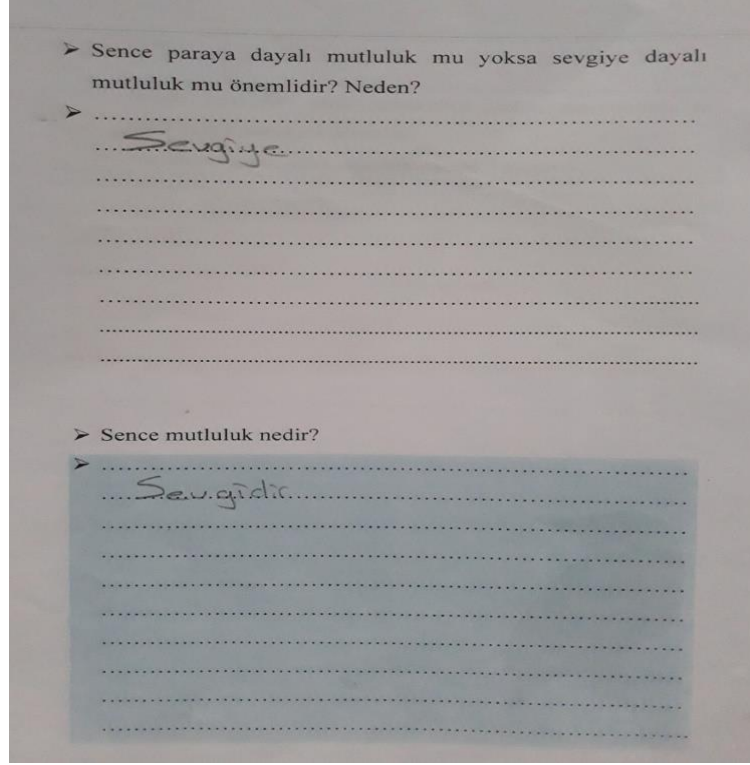 ➢ Sence paraya dayalı mutluluk mu yoksa sevgiye dayalı
mutluluk mu önemlidir? Neden?
➢
Sevgiye
➢ Sence mutluluk nedir?
➢
Sevgidir